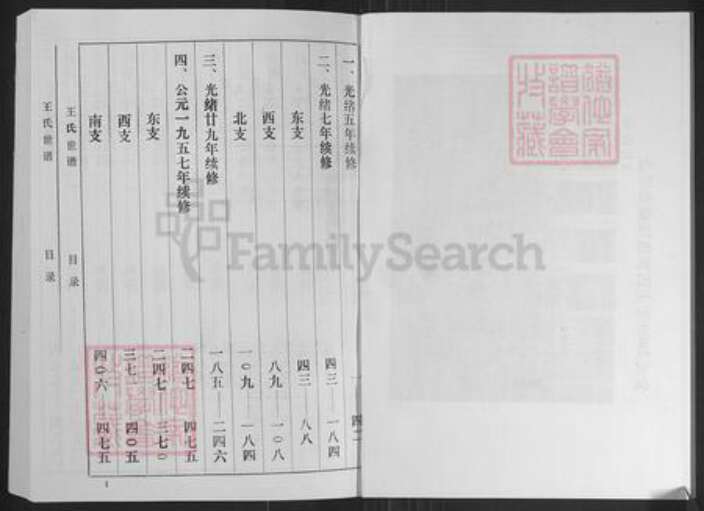 一、光绪五年续修 一 四二
二、光绪七年续修 四三——一八四
东支 四三——八八
西支 八九——一〇八
北支 一〇九——一八四
三、光绪廿九年续修 一八五——二四六
四、公元一九五七年续修 二四七 四七五
东支 二四七 三七〇
西支 三七一 四〇五
南支 四〇六 四七五
王氏世谱 目录
王氏世谱 目录
1
FamilySearch